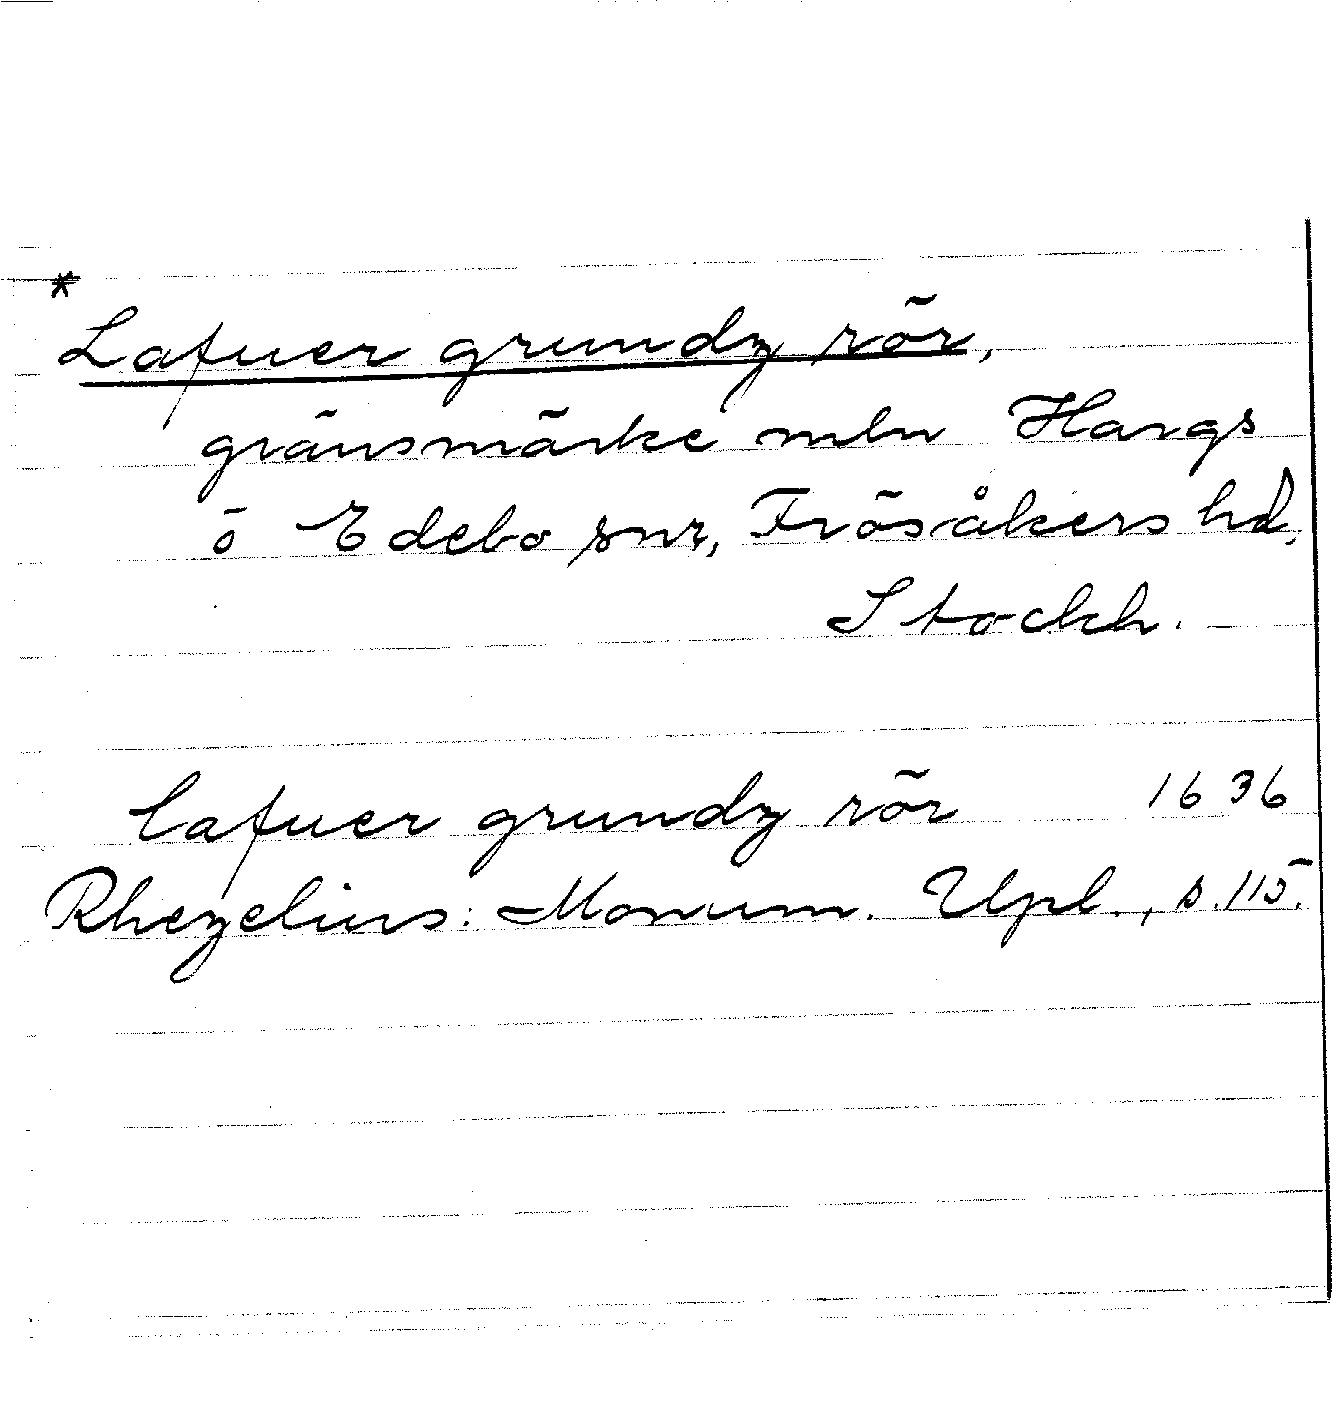 *
Lafuer grundz rör,
gränsmärke mln Hargs
o Edebo snr, Frösåkers hd,
Stockh.
lafuer grundz rör 1636
Rhezelius: Monum. Upl., s. 115.